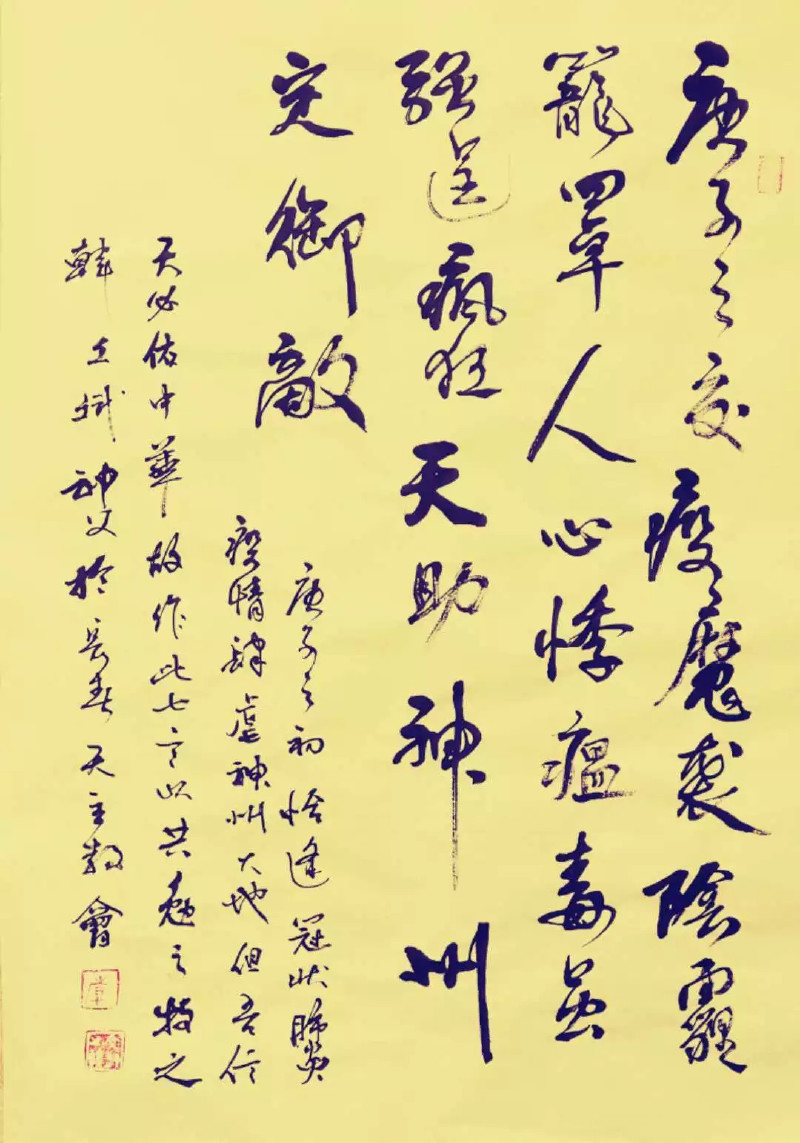 庚子之交疫魔袭陰霾
籠罩人心悸瘟毒虽
强逞瘋狂天助神州
定御敵
庚子之初恰逢冠状肺炎
疫情肆虐神州大地但吾信
天必佑中華故作此七言以共勉之特之
韓士斌神父於长春天主教會